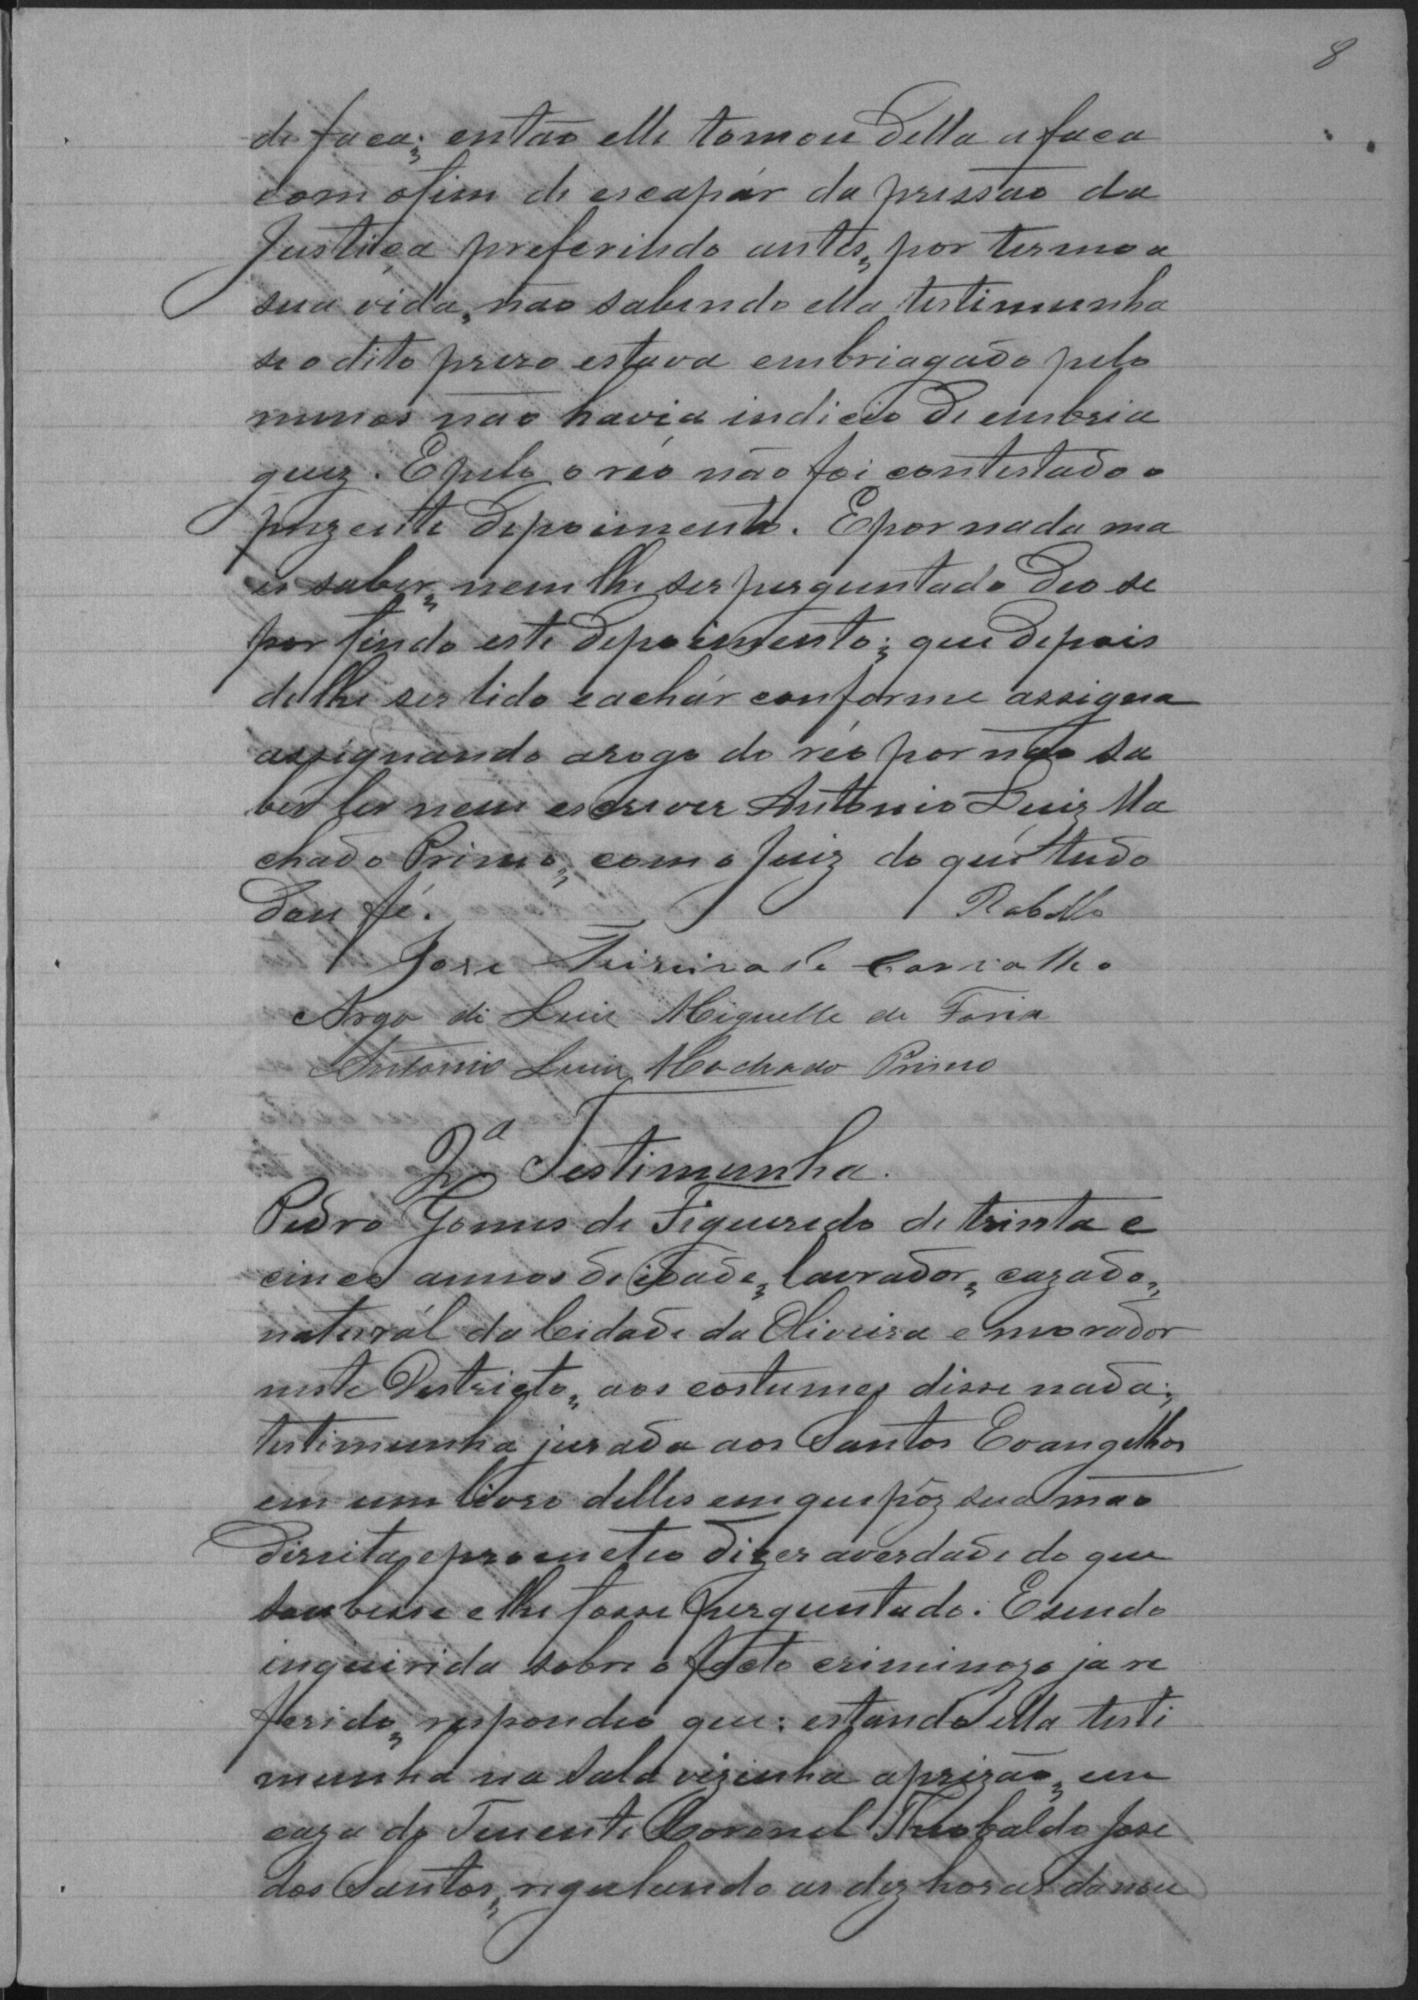 8
de faca; então elle tomou della a faca
com ofim de escapár da pressão da
Justiça preferindo antes, por termo a
sua vida, não sabendo ella testimunha
se o dito prezo estava embriagado pelo
menos não havia indicio de embria
guez. E pelo o réo não foi contestado o
prezente depoimento. E por nada ma
is saber, nem lhe ser perguntado deo se
por findo este depoimento; que depois
de lhe ser lido e achár conforme assigna
assignando arogo do réo por não sa
ber ler nem escrever Antonio Luiz Ma
chado Primo, com o Juiz do que tudo
dou fé. Rabello
Jose Teixeira de Carvalho
Argo di Luiz Miguelle de Faria
Antonio Luiz Machado Primo
2ª Testimunha.
Pedro Gomes de Figueredo de trinta e
cinco annos de idade, lavrador, cazado,
naturál da Cidade da Oliveira e morador
neste Destricto, aos costumes disse nada;
testimunha jurada aos Santos Evangelhos
em um livro delles em que pôz sua mão
direita, e prometeo dizer averdade do que
soubesse e lhe fosse perguntado. E sendo
inquirida sobre o facto criminozo ja re
ferido, respondeo que: estando ella testi
munha na sala vizinha a prizão, em
caza do Tenente Coronel Theobaldo Jose
dos Santos, regulando as dez horas da nou